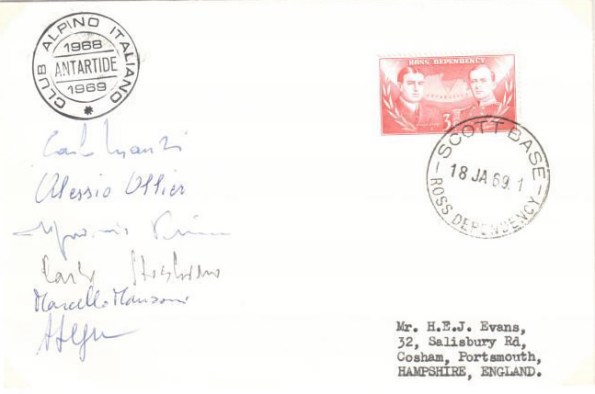 CLUB ALPINO ITALIANO
1968
ANTARTIDE
1969
ROSS DEPENDENCY
3
SCOTT BASE
18 JA 69.1
ROSS DEPENDENCY
Alessio Ollier
Marcello Manzoni
Mr. H.E.J. Evans,
32, Salisbury Rd,
Cosham, Portsmouth,
HAMPSHIRE, ENGLAND.